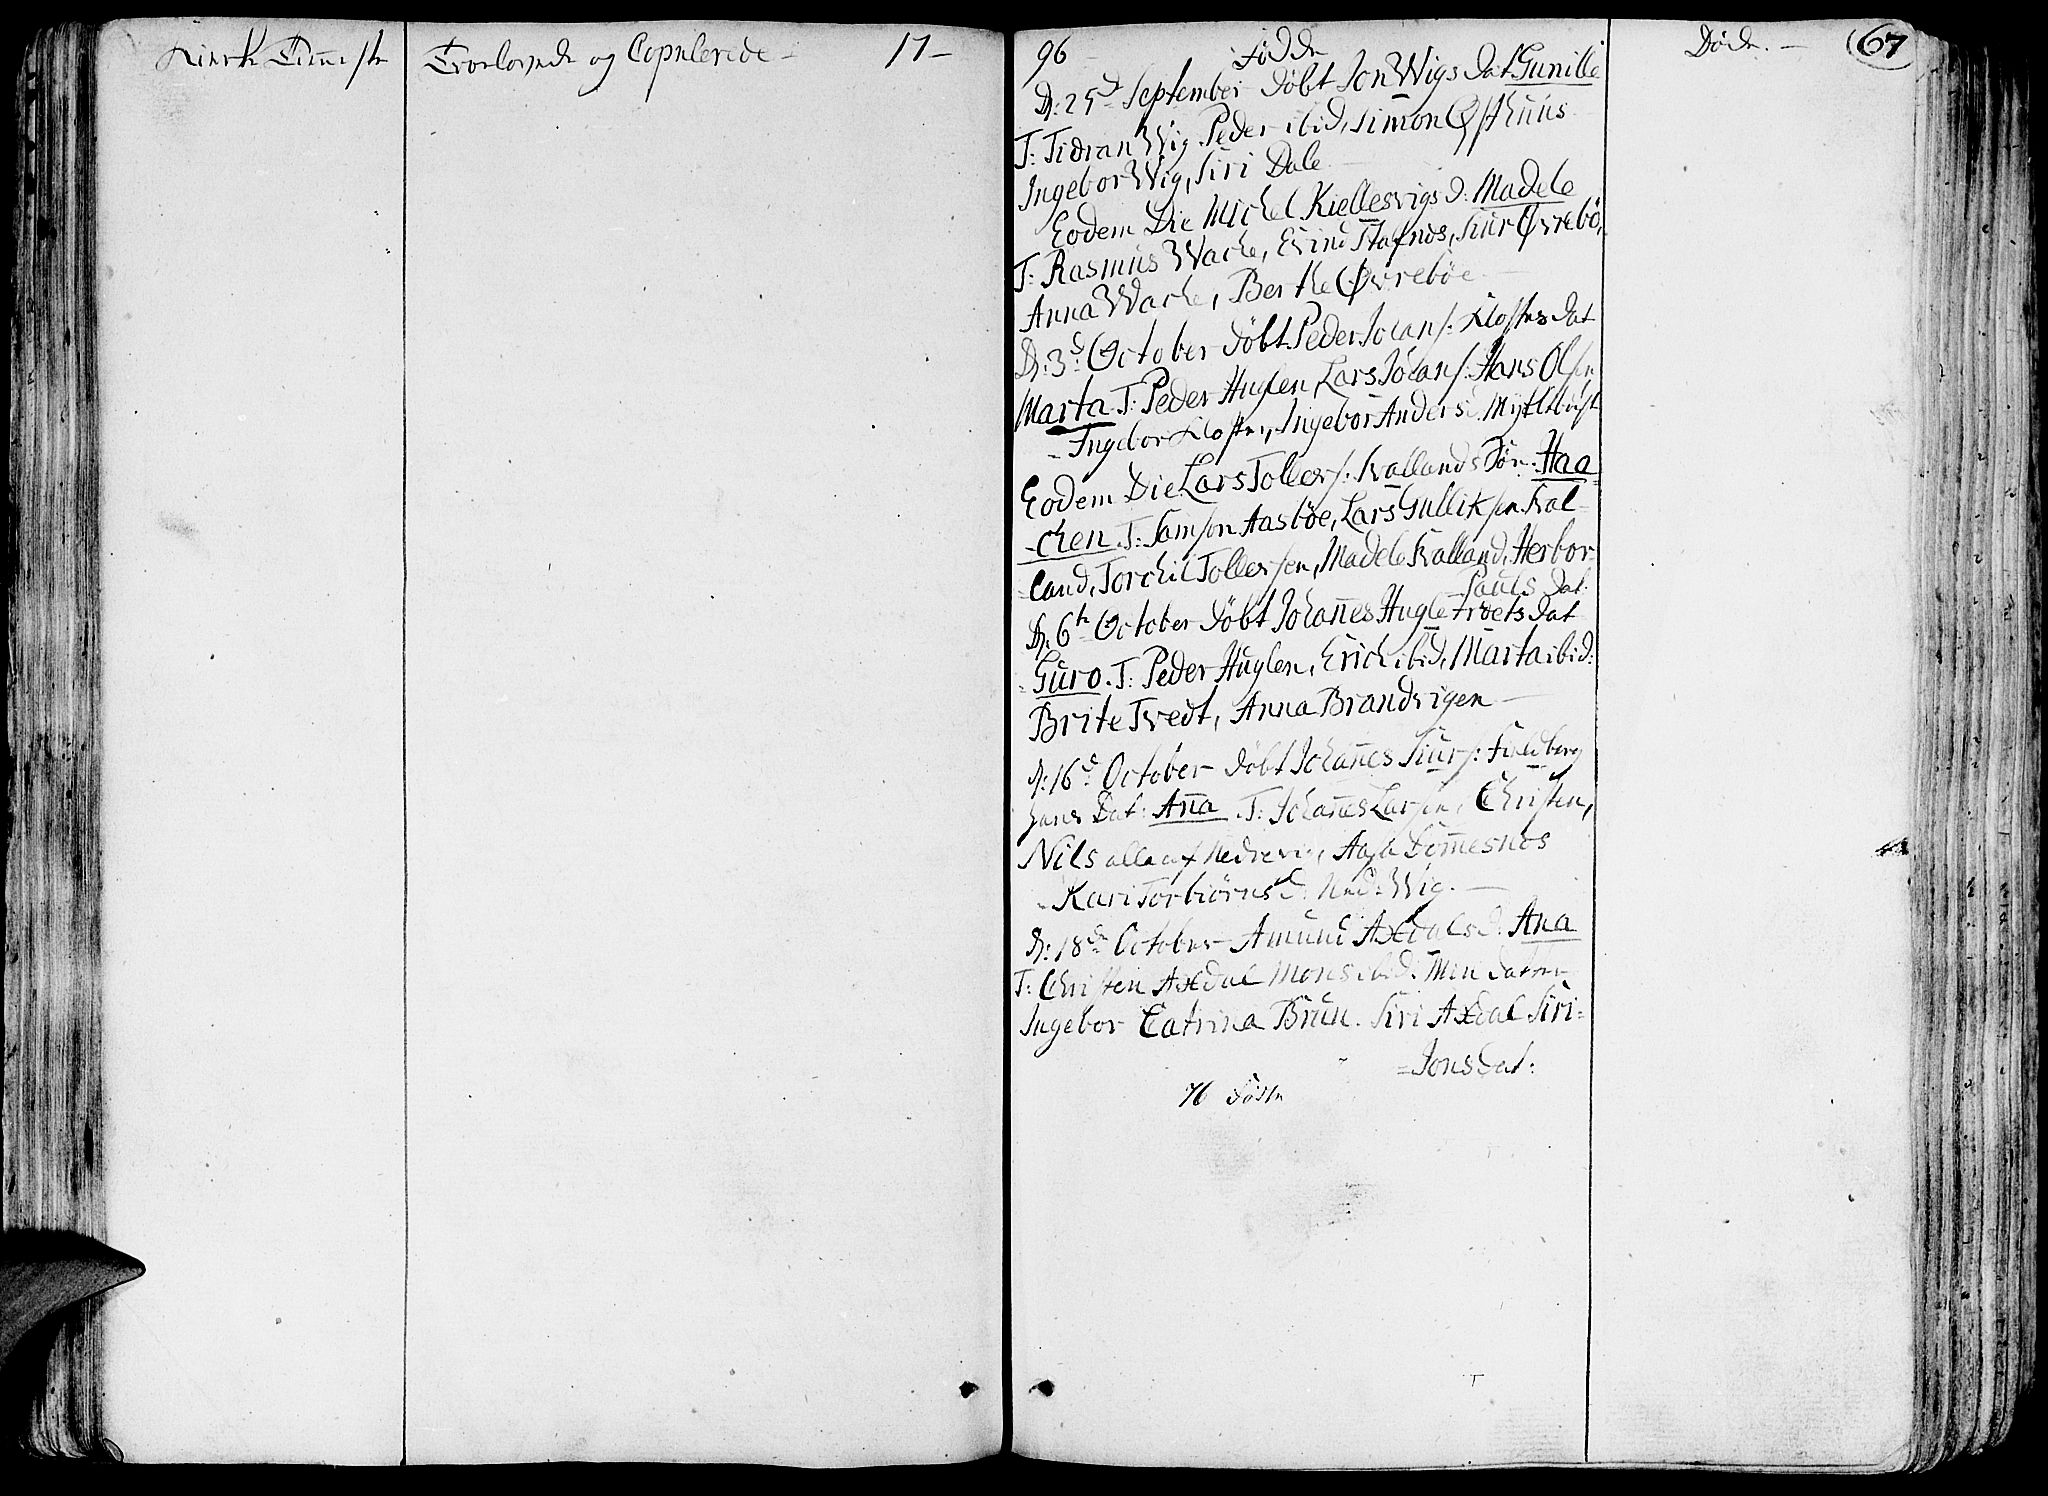 Kirke Tieniste
Troelovede og Copulerede – 17–
96 Fødde
Døde. – 67
D: 25de September døbt Jon Wigs Dat Gunille
T: Tidran Wig Peder ibid, Simon Østhuus
Ingebor Wig, Siri Dale
Eodem Die Michel Kiellesvigs d: Madele
T: Rasmus Wache, Evind Stafnøs, Siur Øvrebø,
Anna Wache, Berthe Øvrebøe –
D: 3de October døbt Peder Johans: Klosters Dat
Marta T: Peder Huglen, Lars Johans: Hans Olsen
Ingebor Kloster, Ingebor Anders d. Mykleb​ust
Eodem Die Lars Tollefs: Kallands Søn: Haa
-chen. T: Samson Aasbøe, Lars Gulliksen Kal-
-land, Torchil Tollefsen, Madele Kalland, Herbor-
Pauls Dat:
D: 6te October døbt Johañes Hugletvets Dat
Guro. T: Peder Huglen, Erich ibid, Marta ibid:
Brite Tvedt, Anna Brandvigen –
D: 16de October døbt Johañes Siurs:
hans Dat: Aña T: Johañes Larsen, Christen,
Nils alle af Nedrevig, Domesnøs
Kari Torbiørns d: Ned: Wig. –
D: 18de October Amund Axdals d. Ana
T: Christen Axdal Mons ibid: Min datter
Ingebor Catrina Brun. Siri Axdal Siri-
=Jons Dat:
76 Fødte